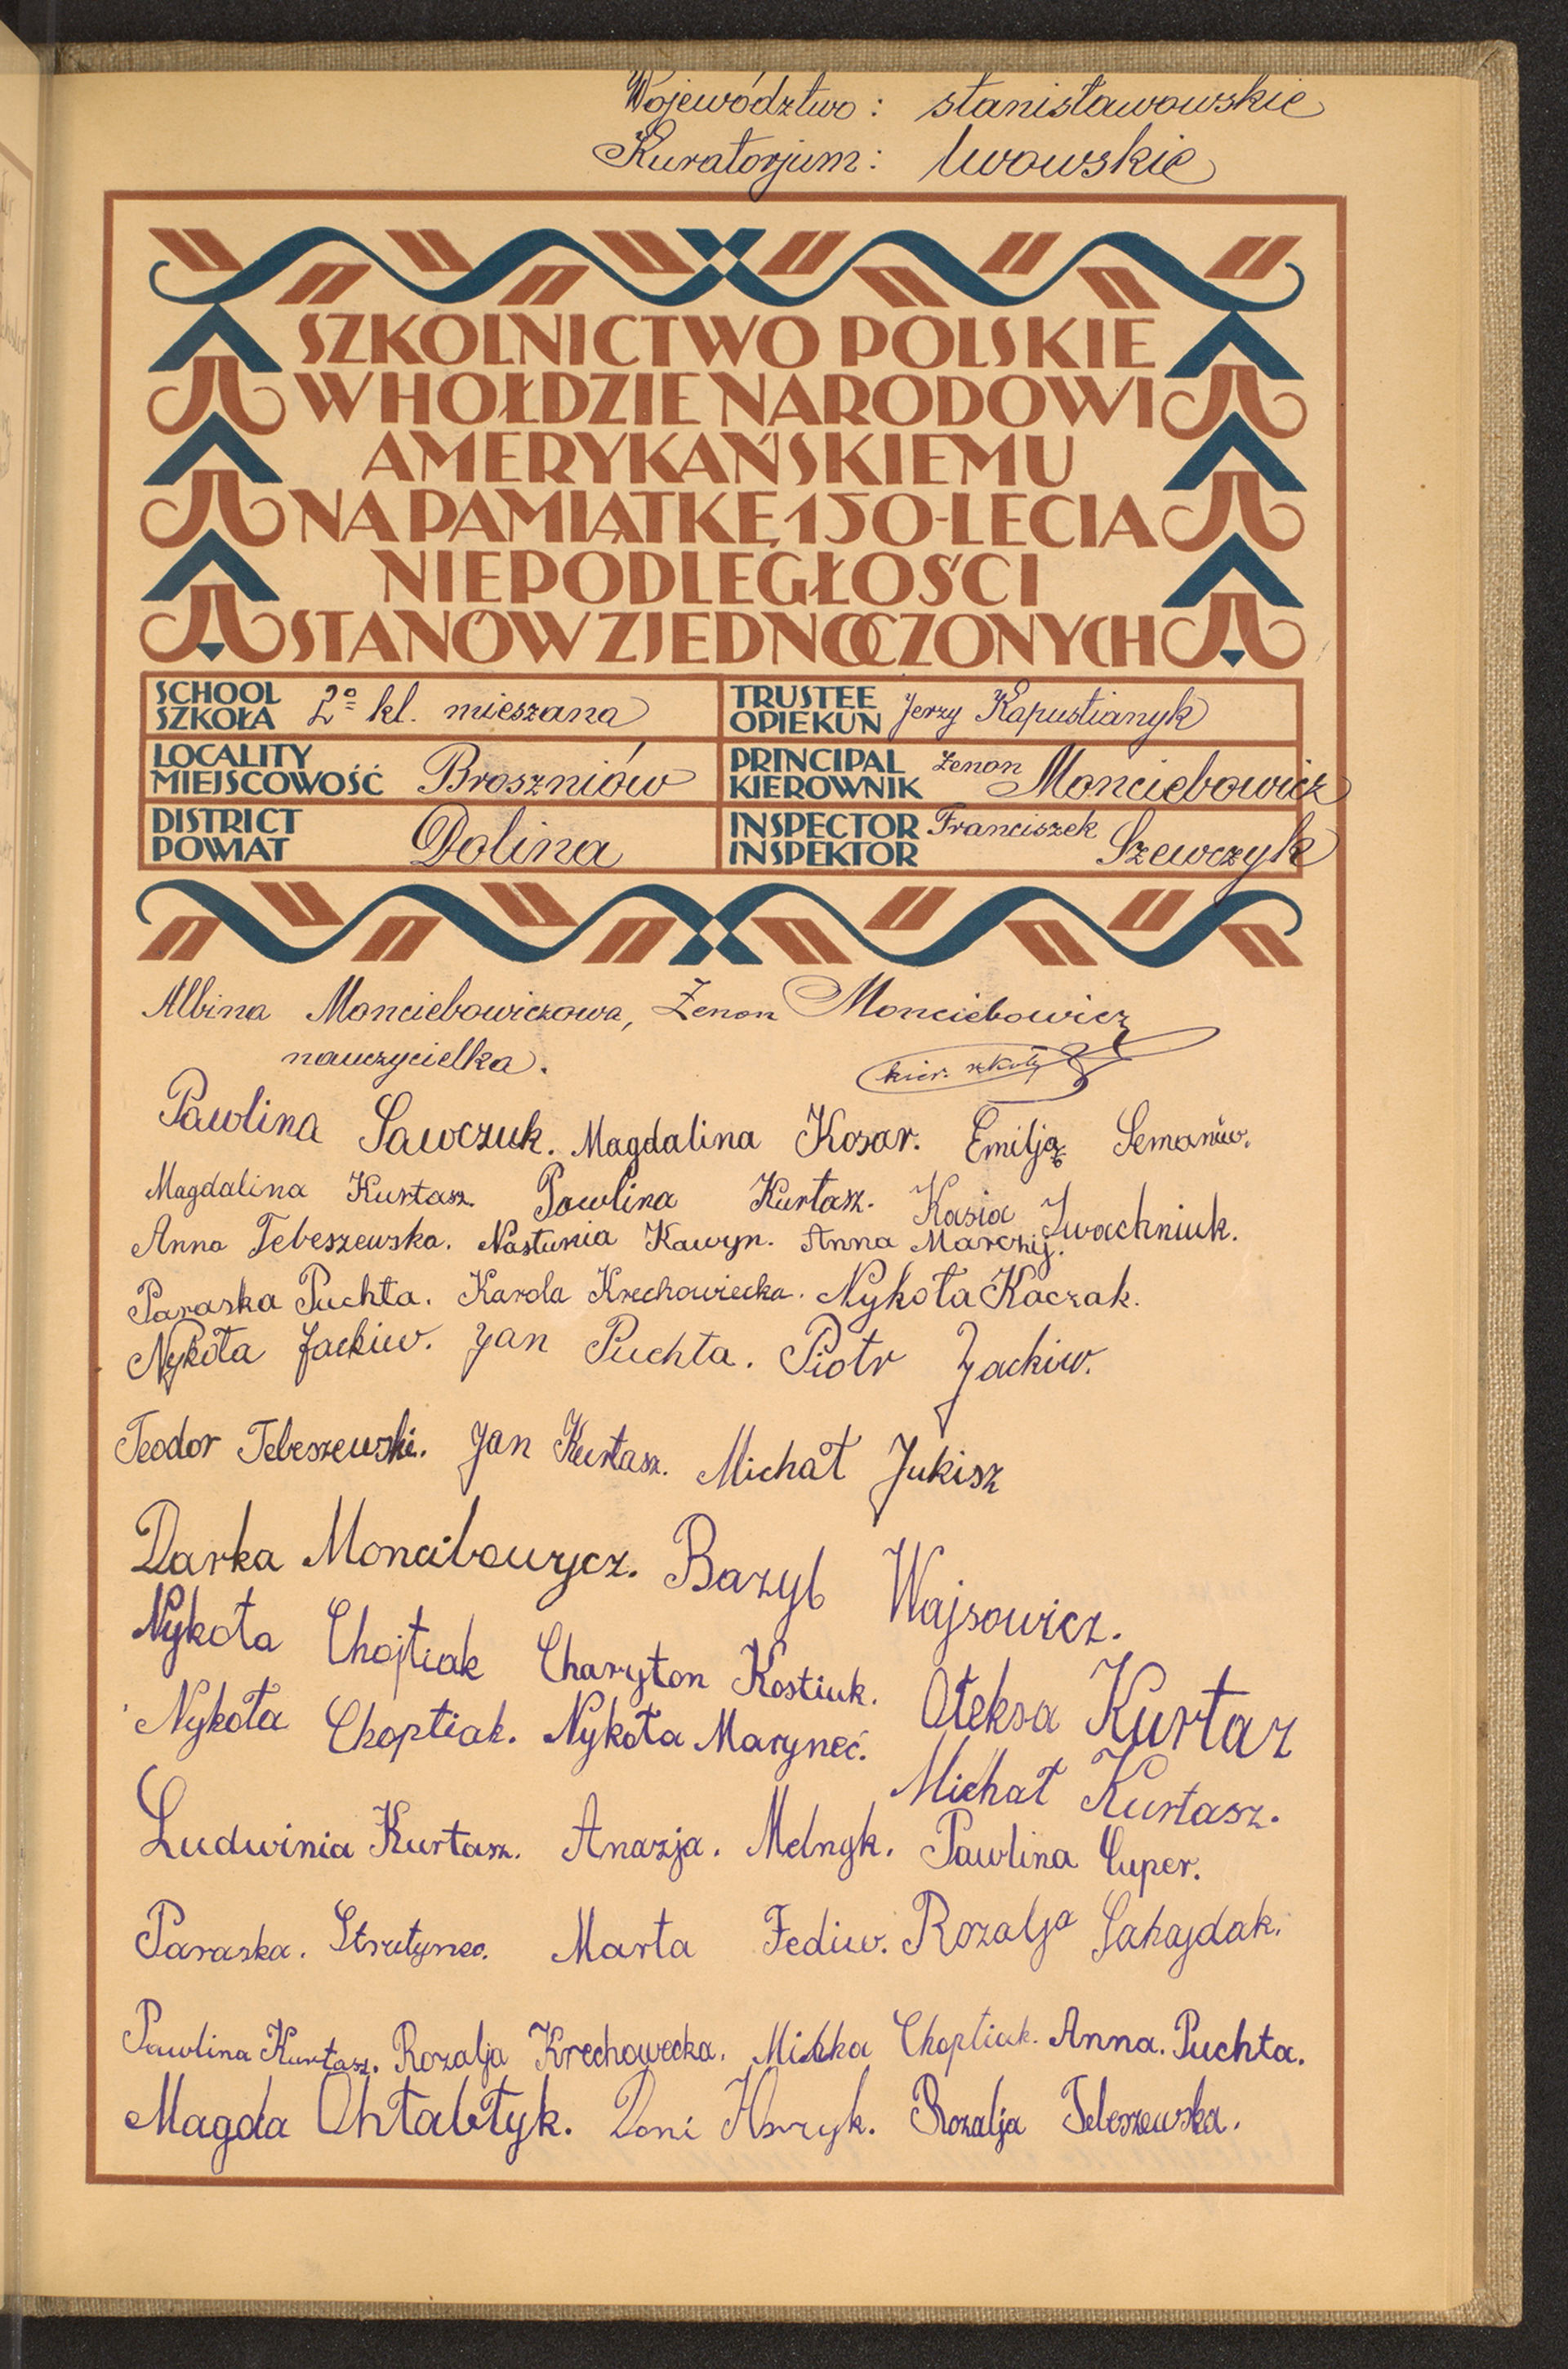 Województwo: stanisławowskie
Kuratorjum: lwowskie
SZKOLNICTWO POLSKIE
W HOŁDZIE NARODOWI
AMERYKAŃSKIEMU
NA PAMIĄTKĘ 150-LECIA
NIEPODLEGŁOŚCI
STANÓW ZJEDNOCZONYCH
SCHOOL SZKOŁA 2º kl. mieszana
TRUSTEE OPIEKUN Jerzy Kapustianyk
LOCALITY MIEJSCOWOŚĆ Broszniów
PRINCIPAL KIEROWNIK Zenon Monciebowicz
DISTRICT POWIAT Dolina
INSPECTOR INSPEKTOR Franciszek Szewczyk
Albina Monciebowiczowa, Zenon Monciebowicz
nauczycielka. kier. szkoły
Pawlina Sawczuk. Magdalina Kosar. Emilja Semaniw.
Magdalina Kurtasz. Pawlina Kurtasz. Kasia Iwachniuk.
Anna Tebeszewska. Nastunia Kawyn. Anna Marczij.
Paraska Puchta. Karola Krechowiecka. Nykoła Kaczak.
Nykoła Jackiw. Jan Puchta. Piotr Jackiw.
Teodor Tebeszewski. Jan Kurtasz. Michał Jukisz
Darka Moncibowycz. Bazyl Wajsowicz.
Nykoła Chojtiak Charyton Kostiuk. Ołeksa Kurtaz
Nykoła Choptiak. Nykoła Maryneć. Michał Kurtasz.
Ludwinia Kurtasz. Anazja. Melnyk. Pawlina Cuper.
Paraska. Strutynec. Marta Fediw. Rozalja Sahajdak.
Pawlina Kurtasz. Rozalja Krechowecka. Miłka Choptiak. Anna. Puchta.
Magda Chtabtyk. Doni Rozalja Tebeszewska.